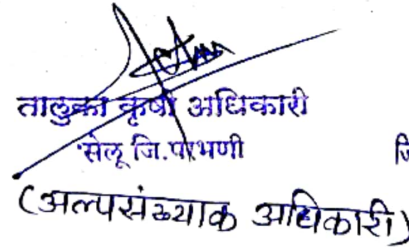 तालुका कृषी अधिकारी
सेलू जि.परभणी
जि
(अल्पसंख्याक अधिकारी)